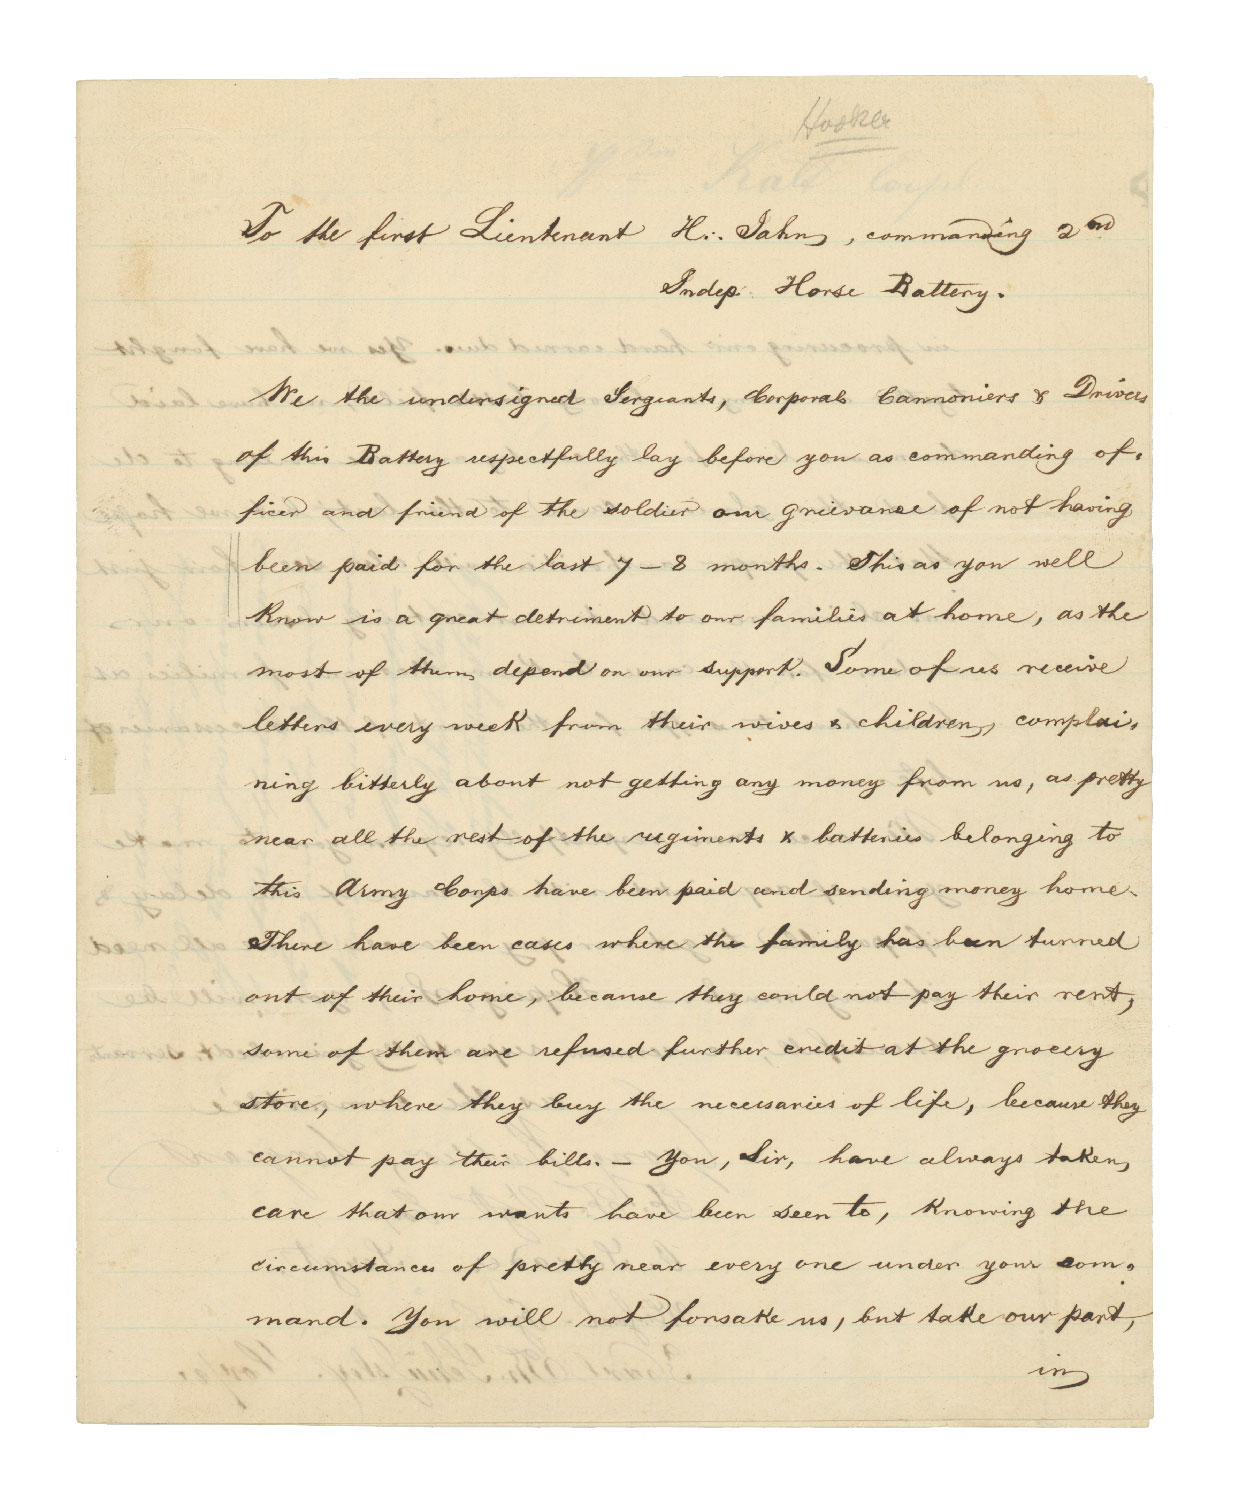 Hooker
To the first Lieutenant H. Jahn, commanding 2nd
Indep. Horse Battery.
We the undersigned Sergeants, Corporals Cannoniers & Drivers
of this Battery respectfully lay before you as commanding of-
ficer and friend of the soldier our grievance of not having
been paid for the last 7 – 8 months. This as you well
know is a great detriment to our families at home, as the
most of them depend on our support. Some of us receive
letters every week from their wives & children, complai-
ning bitterly about not getting any money from us, as pretty
near all the rest of the regiments & batteries belonging to
this Army Corps have been paid and sending money home.
There have been cases where the family has been turned
out of their home, because they could not pay their rent,
some of them are refused further credit at the grocery
store, where they buy the necessaries of life, because they
cannot pay their bills. – You, Sir, have always taken
care that our wants have been seen to, knowing the
circumstances of pretty near every one under your com-
mand. You will not forsake us, but take our part,
in